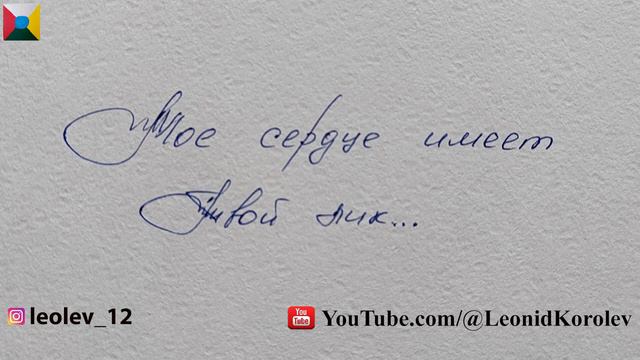 Мое сердце имеет
Твой лик...
leolev_12
You Tube YouTube.com/@LeonidKorolev